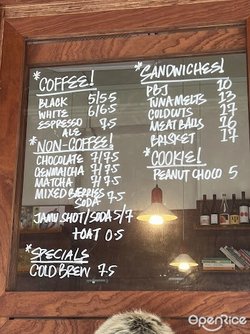 *COFFEE!
BLACK 5/5.5
WHITE 6/6.5
ESPRESSO ALE 7.5
*NON-COFFEE!
CHOCOLATE 7/7.5
GENMAICHA 7/7.5
MATCHA 7/7.5
MIXED BERRIES SODA 7.5
JAMU SHOT/SODA 5/7
+OAT 0.5
*SPECIALS
COLD BREW 7.5
*SANDWICHES!
PBJ 10
TUNA MELTS 13
COLD CUTS 17
MEATBALLS 16
BRISKET 17
*COOKIE!
PEANUT CHOCO 5
OpenRice